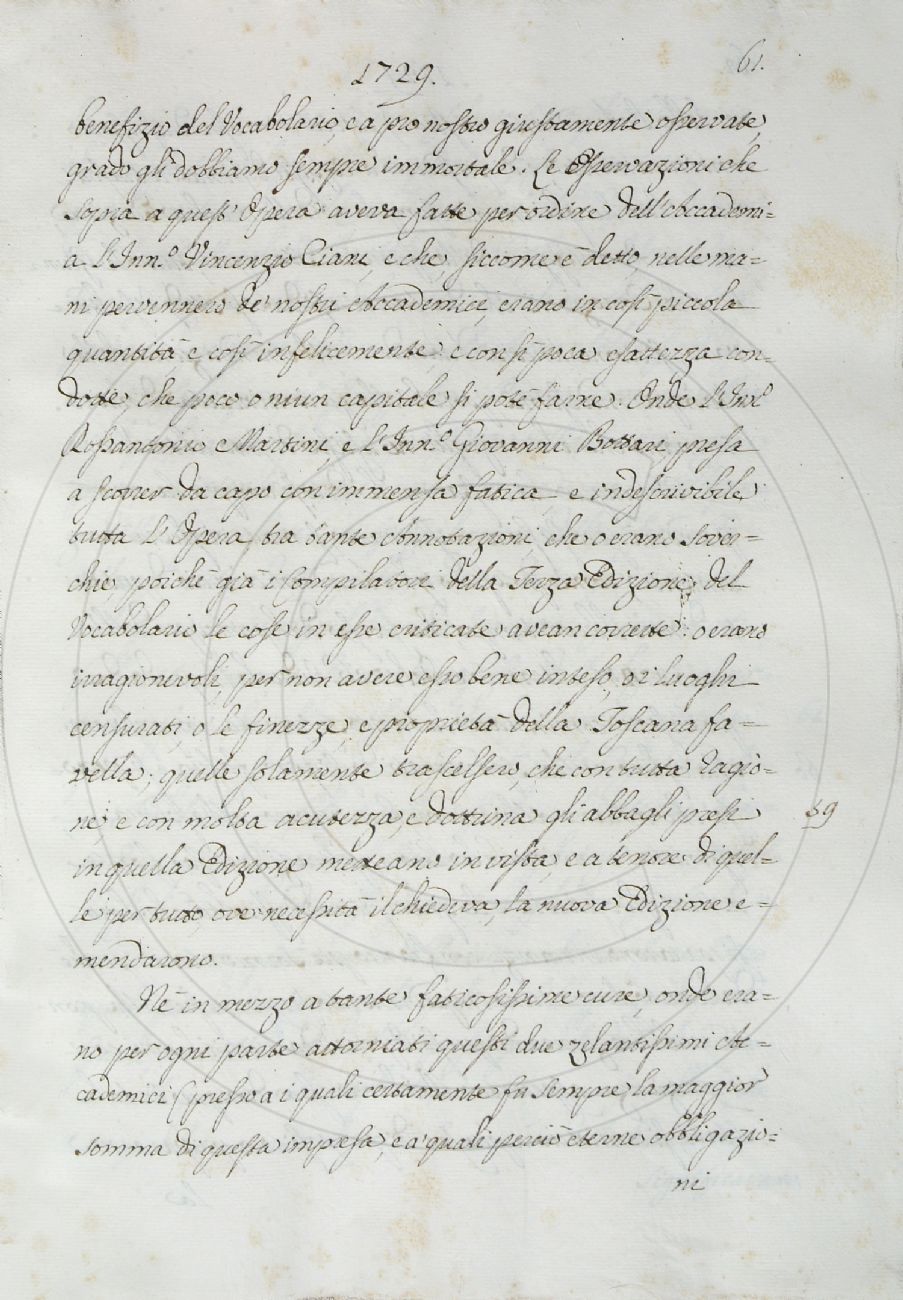 61.
1729.
benefizio del Vocabolario, e a pro nostro giustamente osservate,
grado gli dobbiamo sempre immortale. Le Osservazioni che
sopra a quest' Opera aveva fatte per ordine dell'Accademi=
a l'Inn.º Vincenzio Ciani, e che, siccome è detto, nelle ma=
ni pervennero de' nostri Accademici, erano in così piccola
quantità, e così infelicemente e con sì poca esattezza con=
dotte, che poco o niun capitale si potè farne. Onde l'Inn.º
Rossantonio Martini, e l'Inn.º Giovanni Bottari presa
a scorrer da capo con immensa fatica e indescrivibile
tutta l'Opera, tra tante Annotazioni, che o erano sover=
chie, poichè già i Compilatori della Terza Edizione del
Vocabolario le cose in esse criticate avean corrette: o erano
irragionevoli, per non avere esso bene inteso, o i luoghi
censurati, o le finezze, e proprietà della Toscana fa=
vella; quelle solamente trascelsero, che con tutta ragio=
ne, e con molta acutezza, e dottrina gli abbagli presi
89
in quella Edizione metteano in vista, e a tenore di quel=
le per tutto, ove necessità il chiedeva, la nuova Edizione e=
mendarono.
Nè in mezzo a tante faticosissime cure, onde era=
no per ogni parte attorniati questi due zelantissimi Ac=
cademici (presso a i quali certamente fu sempre la maggior
somma di questa impresa, e a' quali perciò eterne obbligazio=
ni